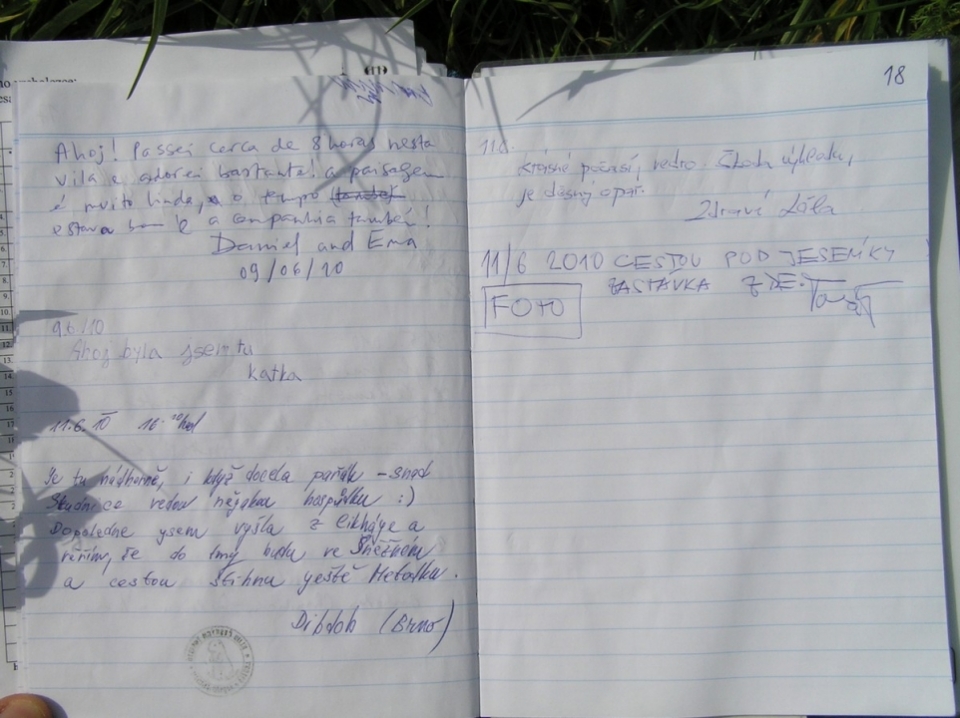 Ahoj! Passei cerca de 8 horas nesta
vila e adorei bastante! a paisagem
é muito linda, o tempo
estava e a companhia também!
Daniel and Ema
09/06/10
9.6./10
Ahoj byla jsem tu
katka
11.6.10 16
Je tu nádherně, i když docela pařák - snad
Studnice vedou nějakou hospůdku :)
Dopoledne ysem vyšla z Cikháye a
věřím, že do tmy budu ve Sněžném
a cestou stihnu yeště
(Brno)
18
11.6.
počasí, vedro. Škoda výhledu,
je opar.
Zdraví
11/6 2010 CESTOU POD JESENÍKY
ZASTÁVKA ZDE.
FOTO